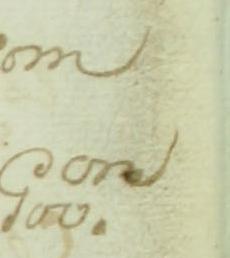 om
Con
Gov.